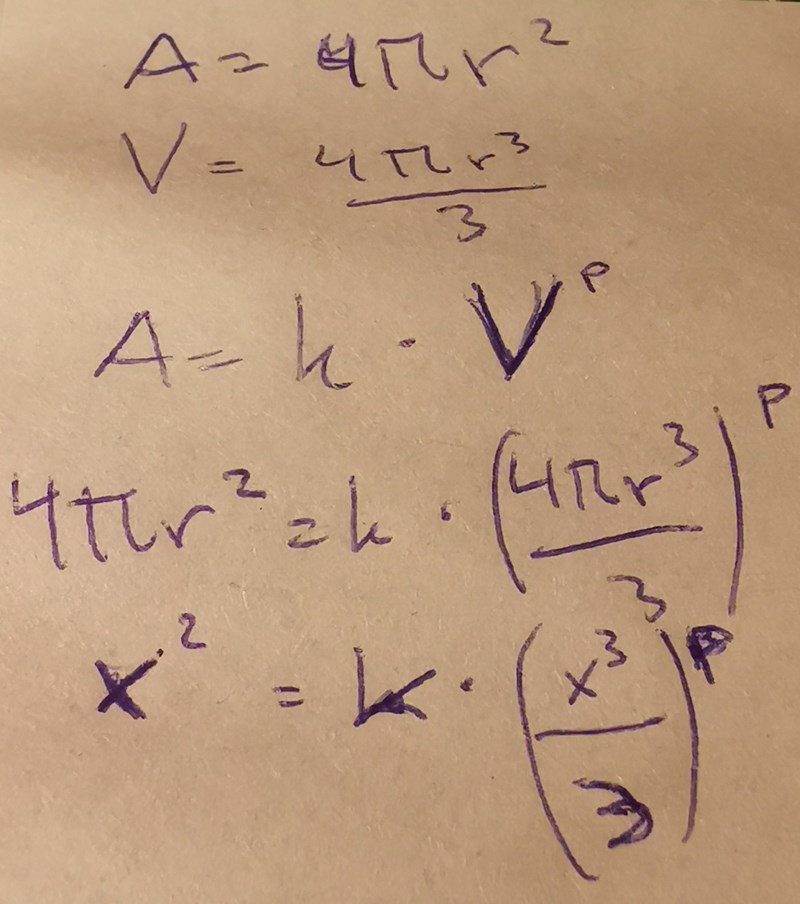 A = 4πr²
V = 4πr³/3
A = k · V^p
4πr² = k · (4πr³/3)^p
x² = k · (x³/3)^p